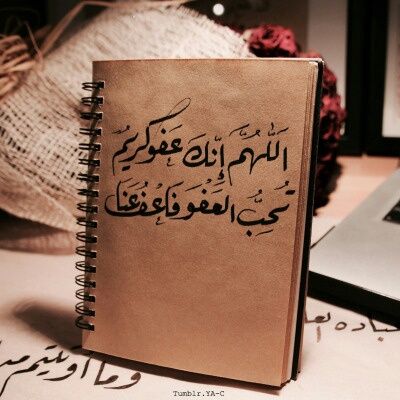 اللَّهُمَّ إِنَّكَ عَفُوٌ كَرِيمٌ
تُحِبُّ العَفْوَ فَاعْفُ عَنَّا
وما أوتيتم من
Tumblr.YA-C